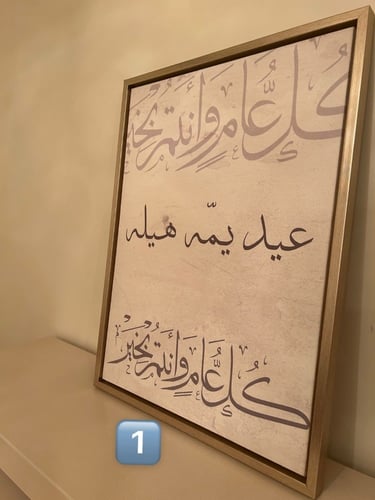 كُلُّ عَامٍ وَأَنتُمْ بِخَيْرٍ
عيد يمّه هيله
كُلُّ عَامٍ وَأَنتُمْ بِخَيْرٍ
1